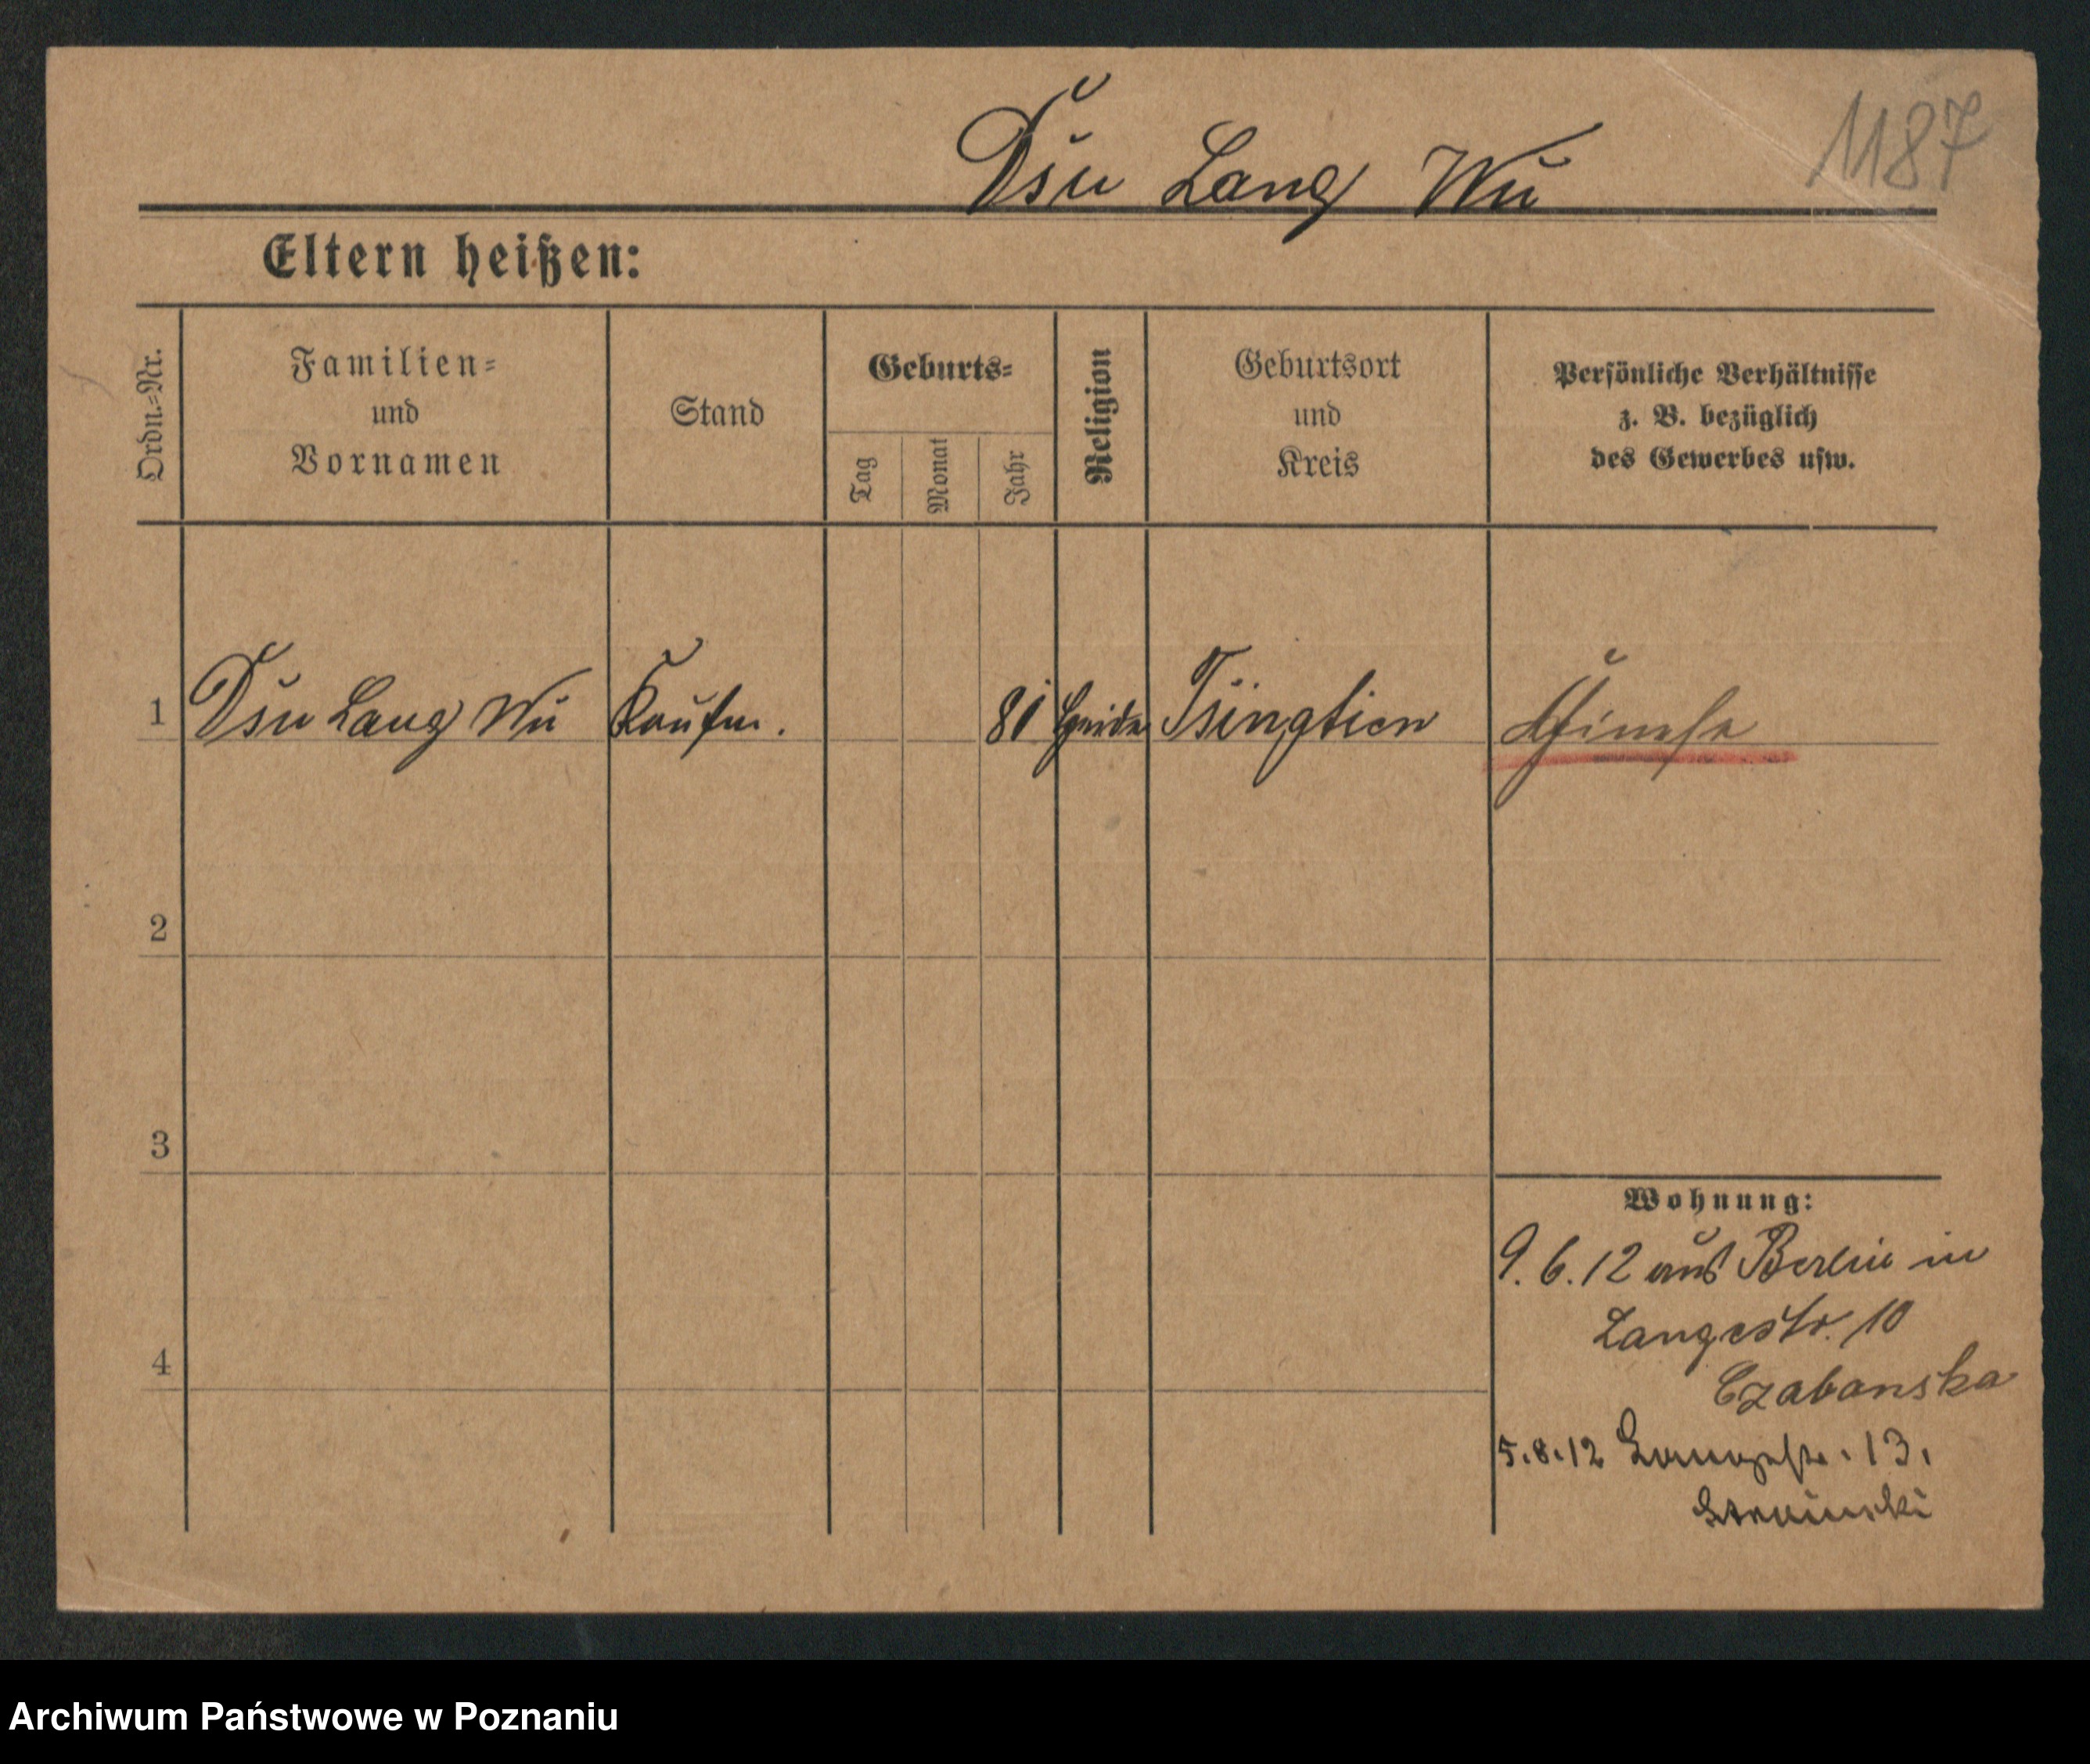 Dsu Lang Wu
1187
Eltern heißen:
Ordn.=Nr.
Familien=
und
Vornamen
Stand
Geburts=
Tag
Monat
Jahr
Religion
Geburtsort
und
Kreis
Persönliche Verhältnisse
z. B. bezüglich
des Gewerbes usw.
1 Dsu Lang Wu Kaufm. 81 Heide Tsingtien Chinese
2
3
Wohnung:
9.6.12 aus Berlin in
Langestr. 10
4
Czabanska
5.8.12 Langestr. 13.
Archiwum Państwowe w Poznaniu